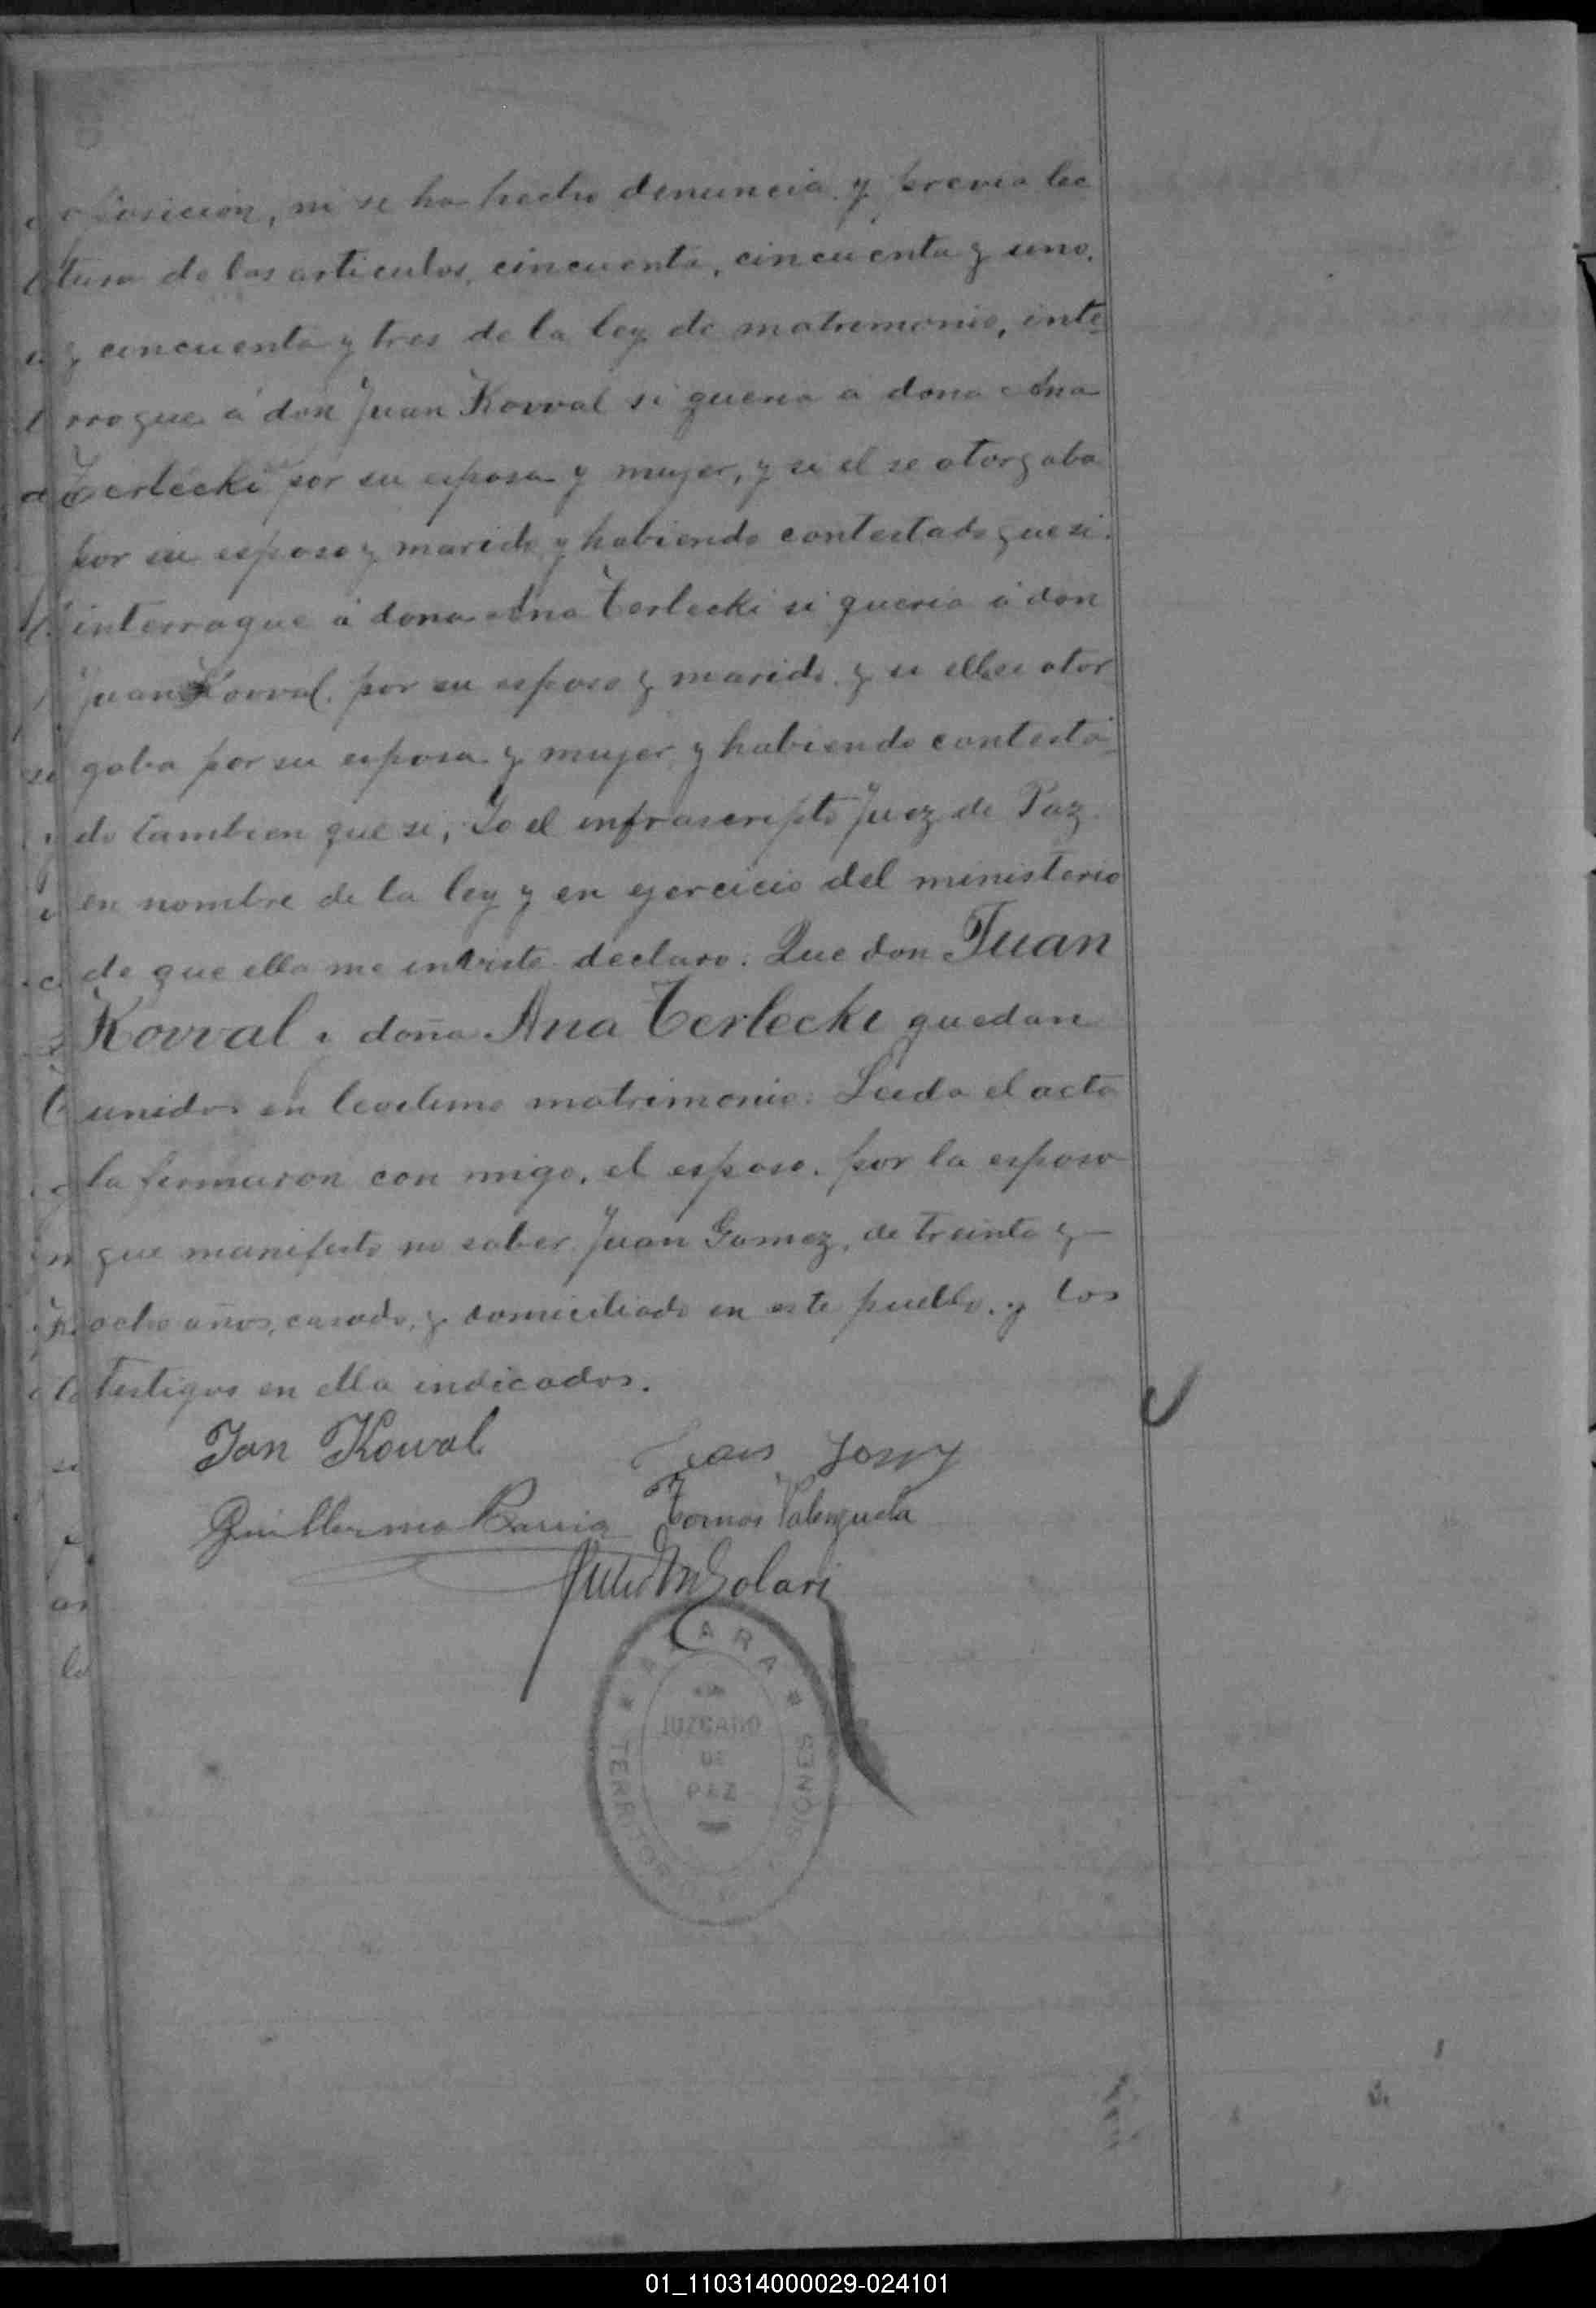 oposicion, ni se ha hecho denuncia y previa lec
tura de los articulos, cincuenta, cincuenta y uno,
y cincuenta y tres de la ley de matrimonio, inte
rrogue á don Juan Kowal si queria a dona Ana
Terlecki por su esposa y mujer, y si el se otorgaba
por su esposo y marido y habiendo contestado que si.
interrogue á dona Ana Terlecki si queria á don
Juan Kowal. por su esposo y marido y si ella se otor
gaba por su esposa y mujer y habiendo contesta
do tambien que si, Yo el infrascripto Juez de Paz
en nombre de la ley y en ejercicio del ministerio
de que ella me inviste declaro. Que don Juan
Kowal i doña Ana Terlecki quedan
unidos en matrimonio. Leida el acta
la firmaron con migo, el esposo. por la esposa
que manifesto no saber Juan Gomez, de treinta y
ocho años, casado, y domiciliado en este pueblo. y los
testigos en ella indicados.
Jan Kowal
Guillermo Barria Tomas Valenzuela
Julio M Solari
JUZGADO
DE
PAZ
01_110314000029-024101